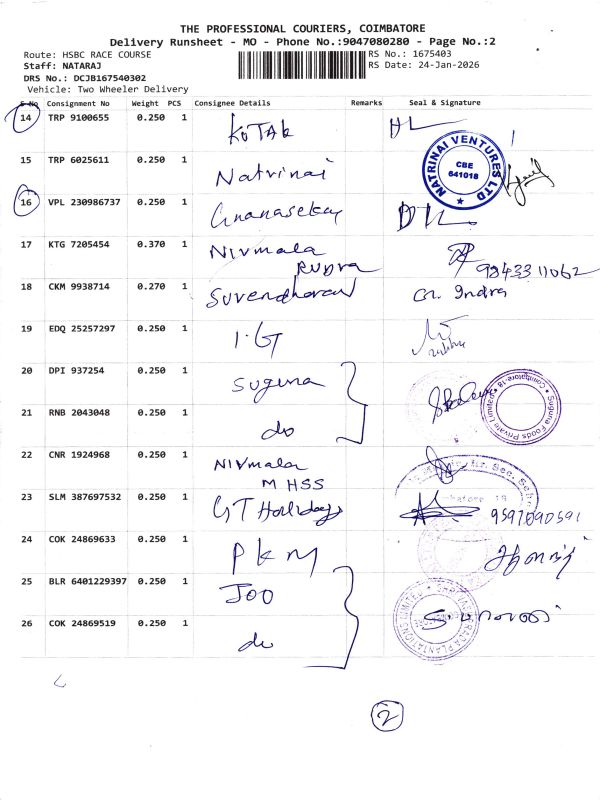 THE PROFESSIONAL COURIERS, COIMBATORE
Delivery Runsheet - MO - Phone No.:9047080280 - Page No.:2
Route: HSBC RACE COURSE RS No.: 1675403
Staff: NATARAJ RS Date: 24-Jan-2026
DRS No.: DCJB167540302
Vehicle: Two Wheeler Delivery
S No Consignment No Weight PCS Consignee Details Remarks Seal & Signature
14 TRP 9100655 0.250 1 KOTAK DL
15 TRP 6025611 0.250 1 Natrinai NATRINAI VENTURES LTD CBE 641018
16 VPL 230986737 0.250 1 Gnanasekar DL
17 KTG 7205454 0.370 1 Nirmala Rudra 9843311062
18 CKM 9938714 0.270 1 Surendharan Indra
19 EDQ 25257297 0.250 1 I.GT
20 DPI 937254 0.250 1 Suguna Suguna Foods Private Limited Coimbatore-18
21 RNB 2043048 0.250 1 do
22 CNR 1924968 0.250 1 Nirmala M HSS Hr. Sec.
23 SLM 387697532 0.250 1 GT Holidays 9597090591
24 COK 24869633 0.250 1 PKM
25 BLR 6401229397 0.250 1 JOO
26 COK 24869519 0.250 1 do PLANTATIONS LIMITED
2